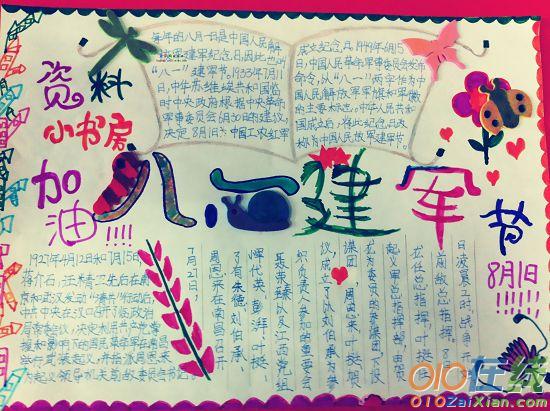 资料
小书房
加油
!!!!!
每年的八月一日是中国人民解
放军建军纪念日,因此也叫
“八一”建军节。1933年7月11
日,中华苏维埃共和国临
时中央政府根据中央革命
军事委员会6月30日的建议,
决定8月1日为中国工农红军
成立纪念日。1949年6月15
日,中国人民革命军事委员会发布
命令,以“八一”两字作为中
国人民解放军军旗和军徽
的主要标志。中华人民共和
国成立后,将此纪念日改
称为中国人民解放军建军节。
八一建军节
8月1日
!!!!!!
1927年4月12日和7月15日
蒋介石、汪精卫先后在南
京和武汉发动
中共中央在汉口召开临时政治
7月27日,
周恩来在南昌召
了有朱德、刘伯承、
恽代英、彭湃、叶挺、
聂荣臻以及江西党组
织负责人参加的重要会
议,成立了以刘伯承为参
谋团,周恩来、叶挺、贺
起义军总指挥部,由贺
龙任总指挥,叶挺任
前敌总指挥。
010在线
010ZaiXian.com